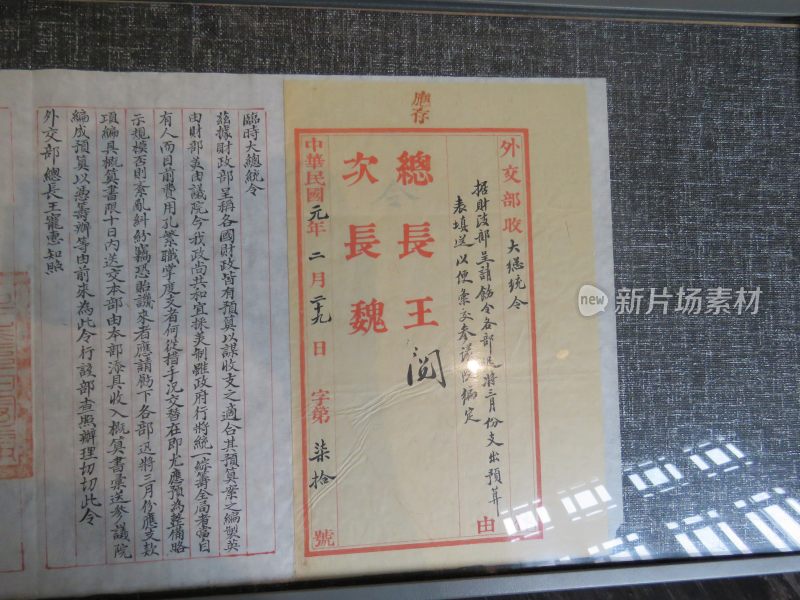 廳存
外交部收 大總統令
據財政部呈請飭令各部迅將三月份支出預算
表填送以便彙交參議院編定
由
總長王 閱
次長魏
中華民國元年二月二十九日 字第柒拾號
臨時大總統令
茲據財政部呈稱各國財政皆有預算以謀收支之適合其預算案之編製英
由財部英由議院今我政尚共和宜採美制雖政府行將統一統籌全局者當自
有人而目前費用孔繁職掌度支者何從措手況交替在即尤應預為整備略
示規模否則紊亂糾紛竊恐貽譏來者應請飭下各部迅將三月份應支款
項編具概算書限十日內送交本部由本部添具收入概算書彙送參議院
編成預算以憑籌辦等由前來為此令行該部查照辦理切切此令
外交部總長王寵惠知照
new
新片场素材